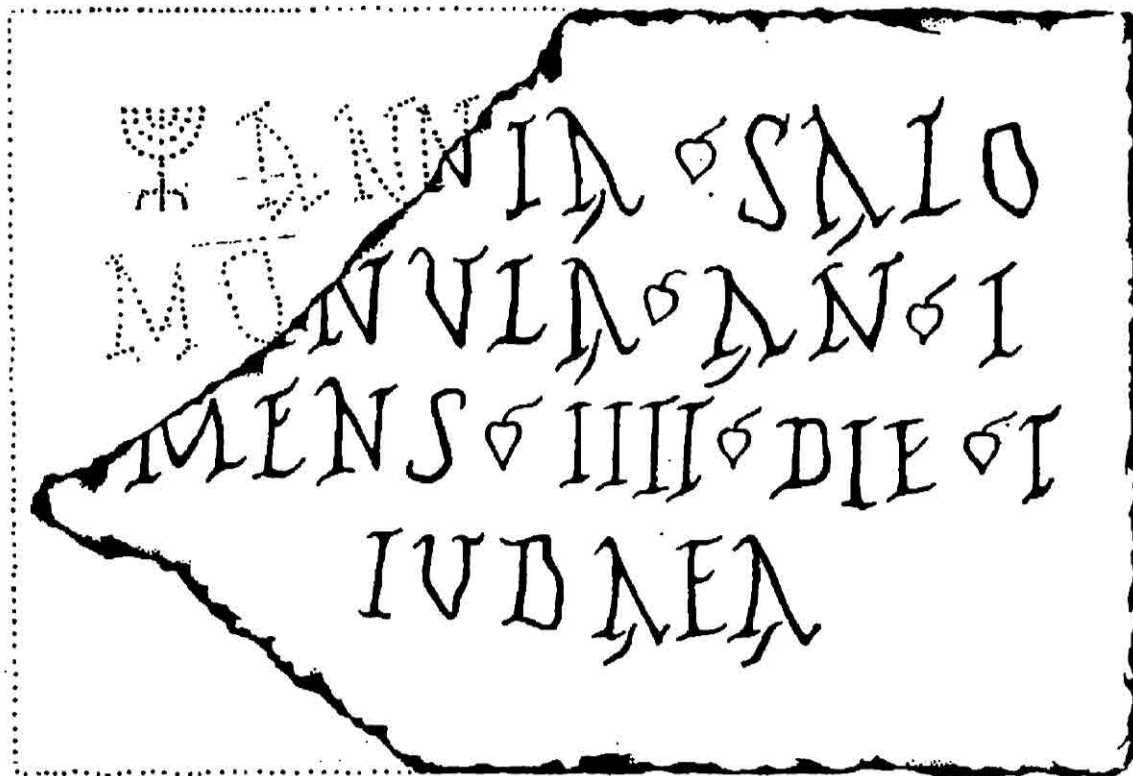 ANNIA SALO
MONULA AN I
MENS IIII DIE I
IUDAEA